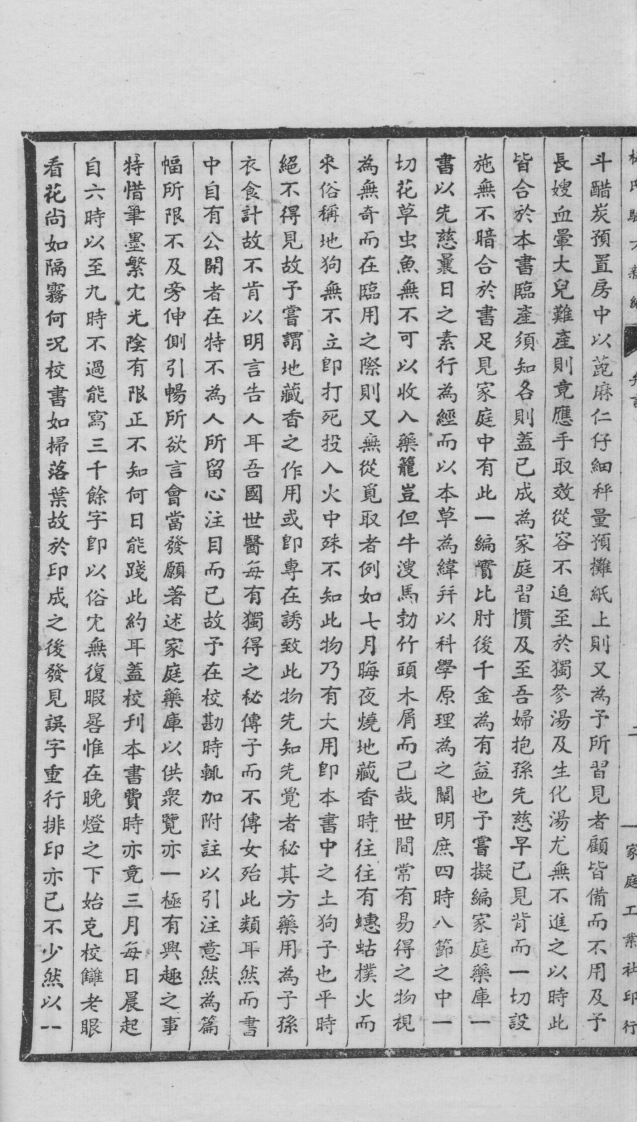 家庭工業社印行
斗醋炭預置房中以萞麻仁仔細秤量預攤紙上則又為予所習見者顧皆備而不用及予
長嫂血暈大兒難產則竟應手取效從容不迫至於獨參湯及生化湯尤無不進之以時此
皆合於本書臨產須知各則蓋已成為家庭習慣及至吾婦抱孫先慈早已見背而一切設
施無不暗合於書足見家庭中有此一編實比肘後千金為有益也予嘗擬編家庭藥庫一
書以先慈曩日之素行為經而以本草為緯幷以科學原理為之闡明庶四時八節之中一
切花草虫魚無不可以收入藥籠豈但牛溲馬勃竹頭木屑而已哉世間常有易得之物視
為無奇而在臨用之際則又無從覓取者例如七月晦夜燒地藏香時往往有蟪蛄撲火而
來俗稱地狗無不立卽打死投入火中殊不知此物乃有大用卽本書中之土狗子也平時
絕不得見故予嘗謂地藏香之作用或卽專在誘致此物先知先覺者秘其方藥用為子孫
衣食計故不肯以明言告人耳吾國世醫每有獨得之秘傳子而不傳女殆此類耳然而書
中自有公開者在特不為人所留心注目而已故予在校勘時輒加附註以引注意然為篇
幅所限不及旁伸側引暢所欲言會當發願著述家庭藥庫以供衆覽亦一極有興趣之事
特惜筆墨繁冗光陰有限正不知何日能踐此約耳蓋校刊本書費時亦竟三月每日晨起
自六時以至九時不過能寫三千餘字卽以俗冗無復暇晷惟在晚燈之下始克校讎老眼
看花尚如隔霧何況校書如掃落葉故於印成之後發見誤字重行排印亦已不少然以一